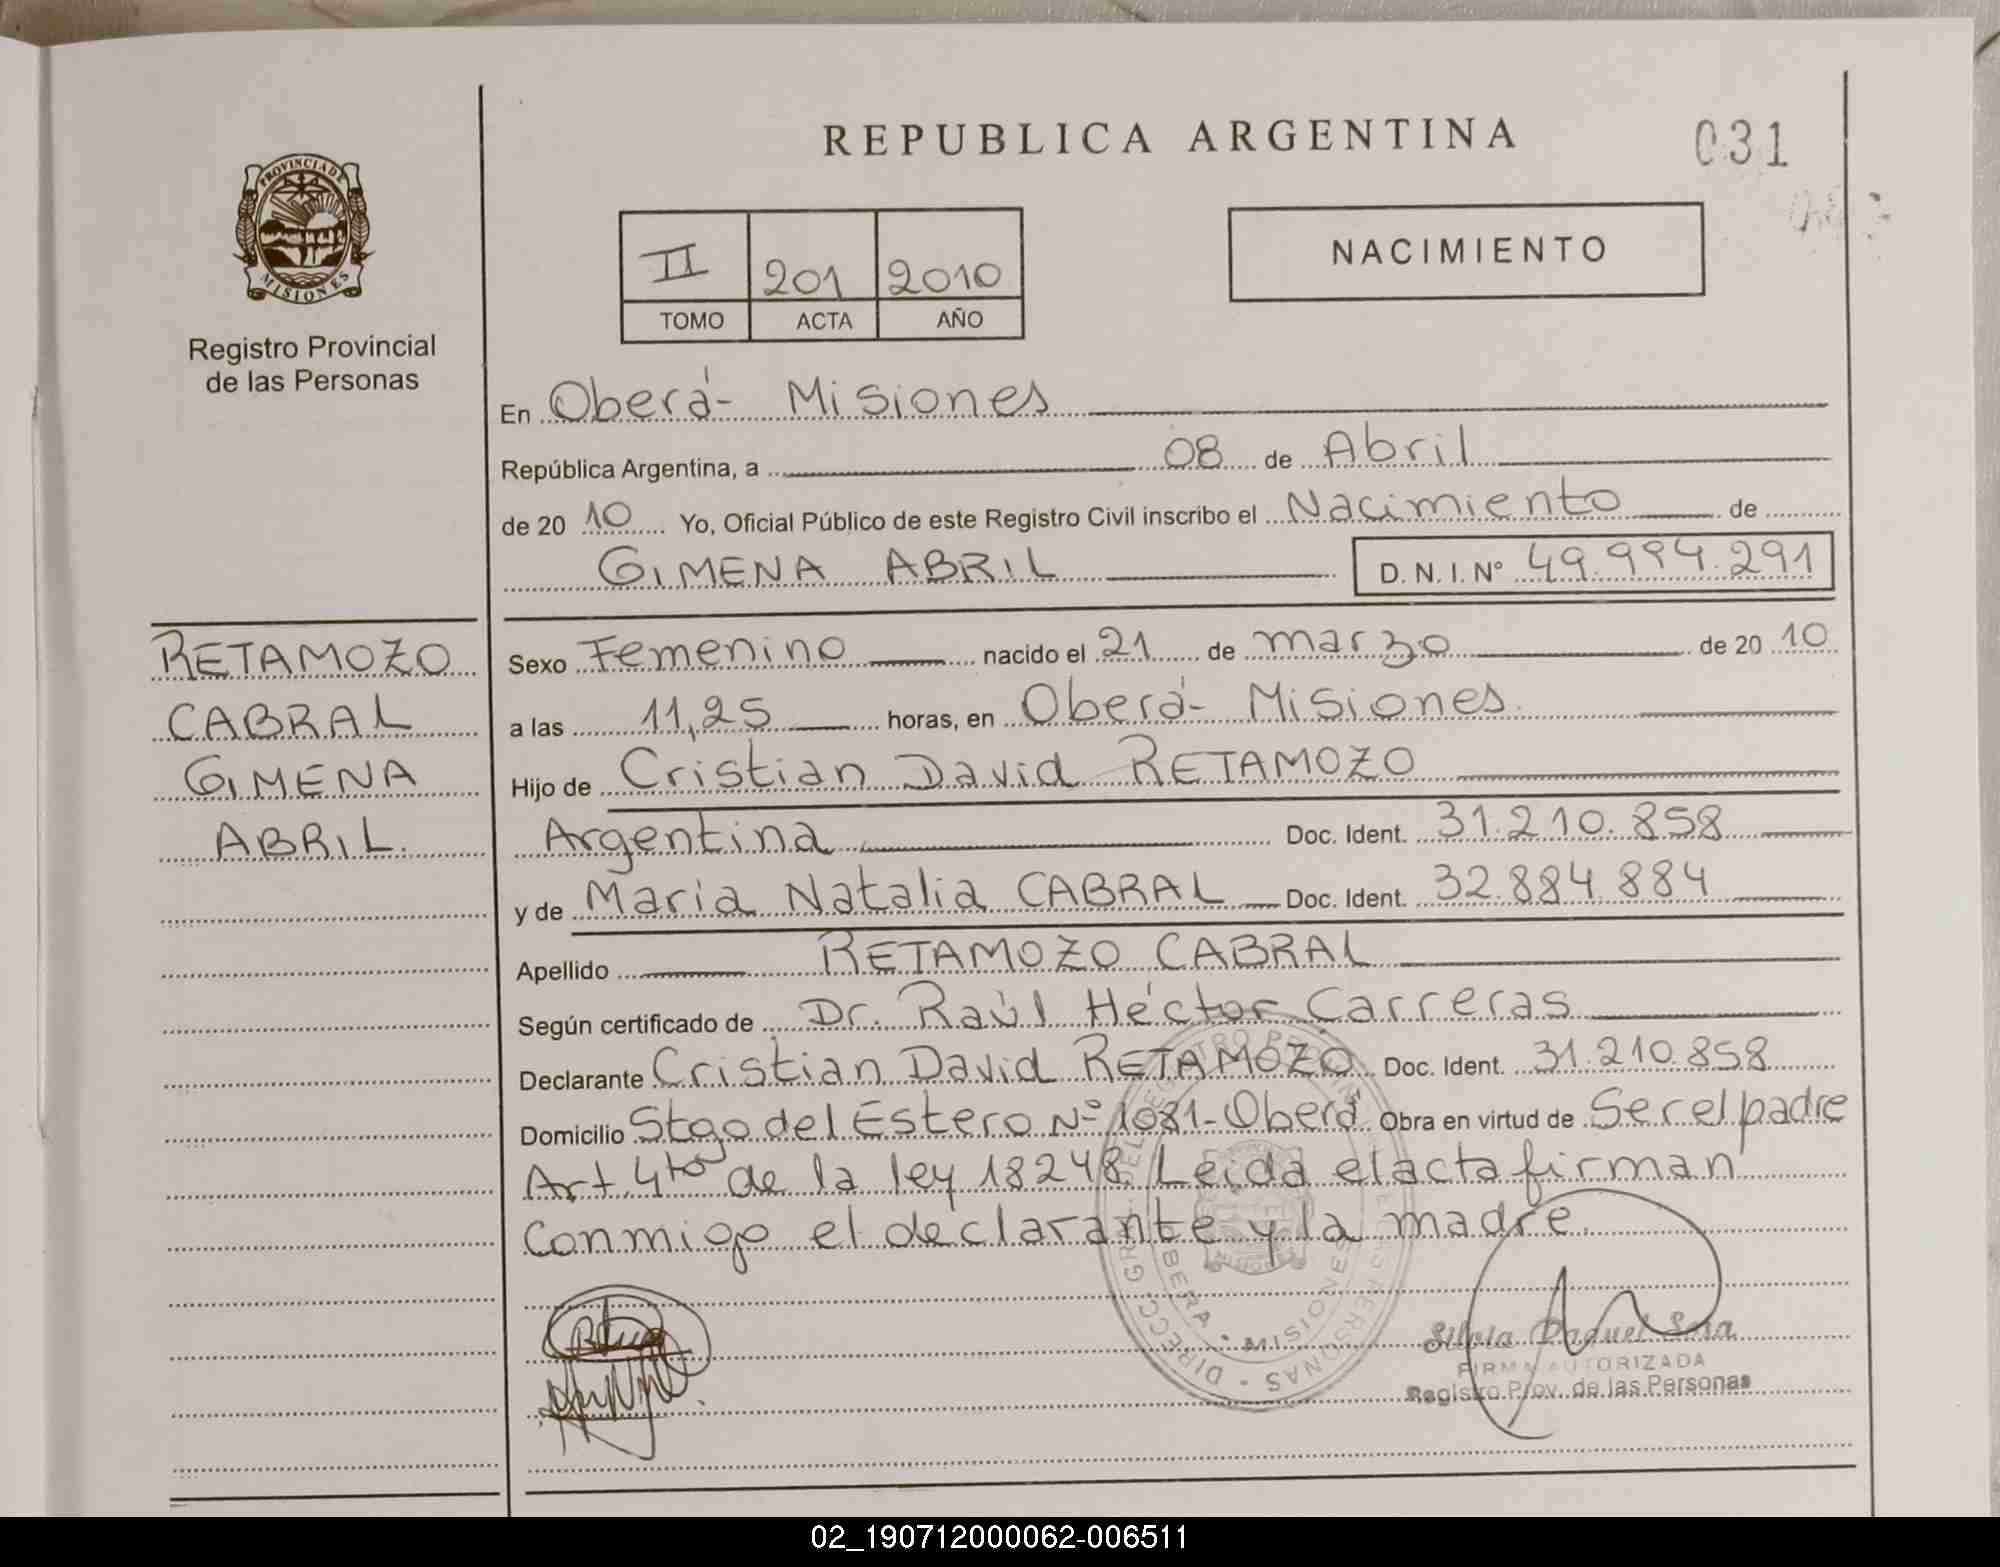 REPUBLICA ARGENTINA
031
PROVINCIA DE
MISIONES
Registro Provincial
de las Personas
II 201 2010
TOMO ACTA AÑO
NACIMIENTO
En Oberá - Misiones
República Argentina, a 08 de Abril
de 20 10 Yo, Oficial Público de este Registro Civil inscribo el Nacimiento de
GIMENA ABRIL D. N. I. Nº 49.994.291
RETAMOZO
CABRAL
GIMENA
ABRIL.
Sexo Femenino nacido el 21 de marzo de 20 10
a las 11,25 horas, en Oberá - Misiones.
Hijo de Cristian David RETAMOZO
Argentina Doc. Ident. 31.210.858
y de Maria Natalia CABRAL Doc. Ident. 32.884.884
Apellido RETAMOZO CABRAL
Según certificado de Dr. Raúl Héctor Carreras
Declarante Cristian David RETAMOZO Doc. Ident. 31.210.858
Domicilio Stgo del Estero Nº 1081 - Oberá Obra en virtud de Ser el padre
Art. 4to de la ley 18248. Leida el acta firman
conmigo el declarante y la madre.
Silvia Raquel Sosa
FIRMA AUTORIZADA
Registro Prov. de las Personas
02_190712000062-006511